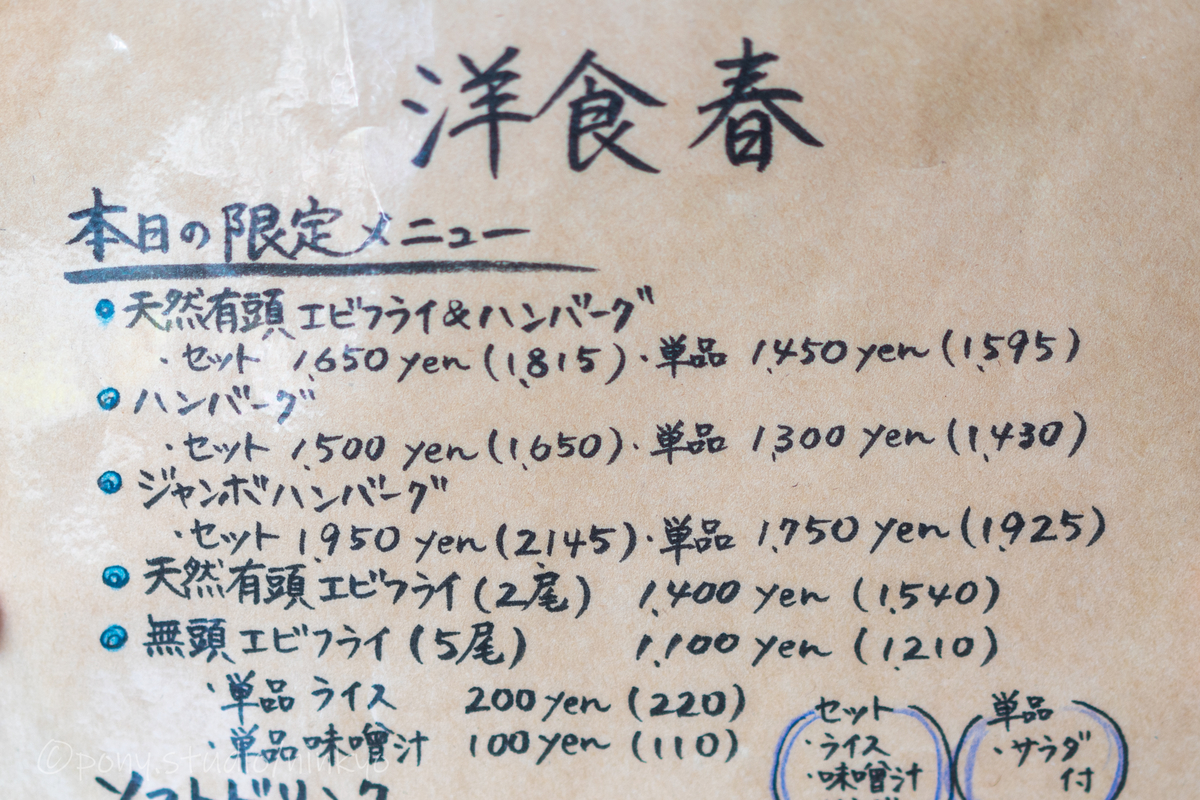 洋食春
本日の限定メニュー
天然有頭エビフライ&ハンバーグ
・セット 1,650 yen (1,815)・単品 1,450 yen (1,595)
ハンバーグ
・セット 1,500 yen (1,650)・単品 1,300 yen (1,430)
ジャンボハンバーグ
・セット 1,950 yen (2,145)・単品 1,750 yen (1,925)
天然有頭エビフライ(2尾) 1,400 yen (1,540)
無頭エビフライ(5尾) 1,100 yen (1,210)
・単品 ライス 200 yen (220)
・単品 味噌汁 100 yen (110)
ソフトドリンク
セット
・ライス
・味噌汁
単品
・サラダ
付